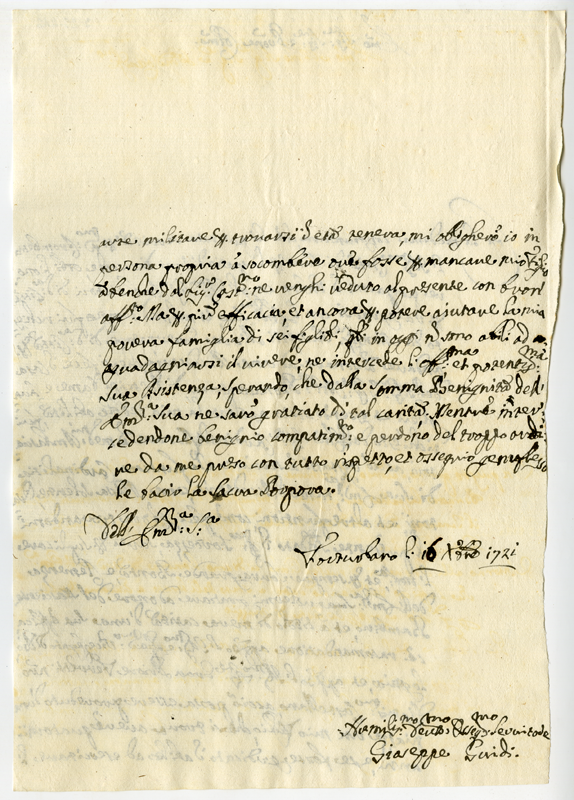 arte militare p trovarsi i età tenera, mi obligherò io in
persona propria a socombere ove fosse p mancare mio figlio
benche dal Sig: Cast:no ne venghi veduto al presente con buon
aff:o Ma p più efficacia et ancora p potere aiutare la mia
povera famiglia di sei figlioli, che in oggi n sono abili ad
guadagniarssi il vivere, ne intercede l: eff:ma et potentis:ma
sua Assistenza, sperando, che dalla somma Benignità dell'
Em:za sua ne sarò gratiato di tal carità. Mentre inter
cedendone benignio compatim:to e perdono del troppo ardi
re da me preso con tutto rispetto, et ossequio genuflesso
le bacio la Sacra Porpora.
Dell' Em:za S:a
li 16 Xbre 1721
Humilis:mo Devot:mo Oblig:mo Servitode
Giuseppe Guidi.